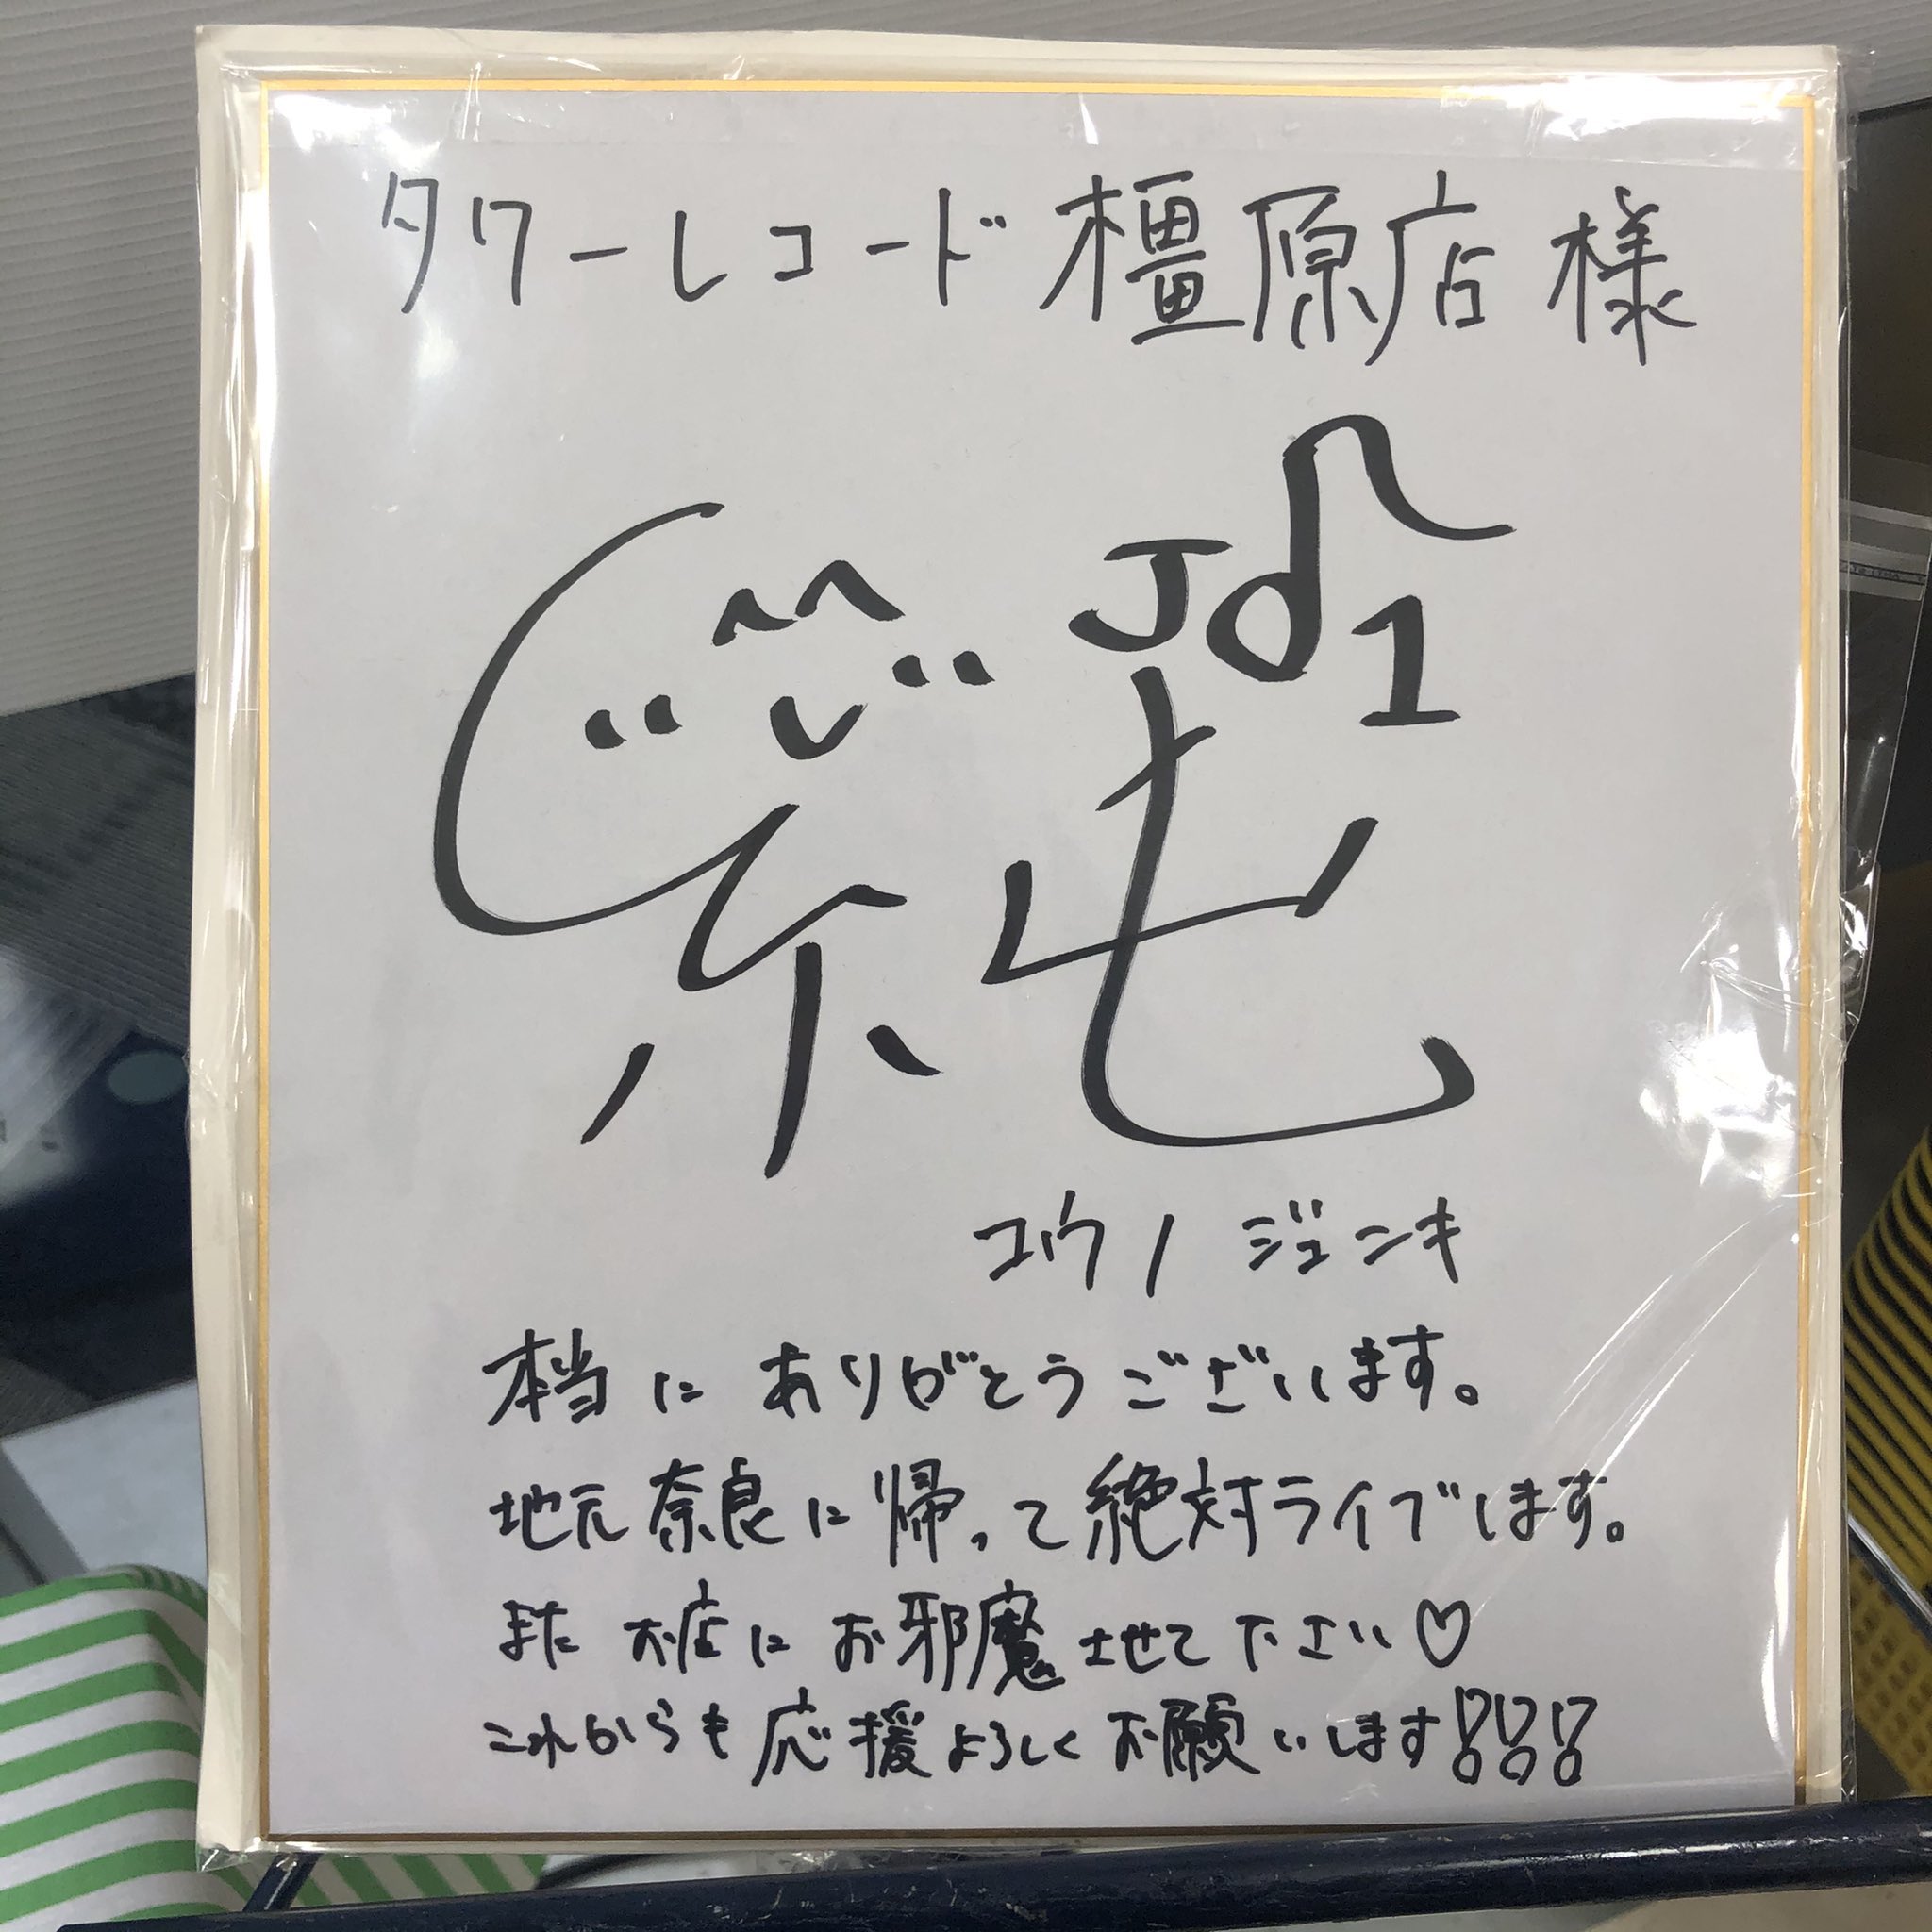 タワーレコード橿原店様
JO1
純
コウノ ジュンキ
本当にありがとうございます。
地元奈良に帰って絶対ライブします。
またお店にお邪魔させて下さい♡
これからも応援よろしくお願いします!!!